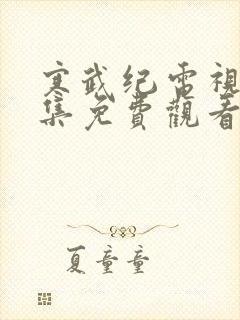 寒武纪電視
集免費觀看
夏童童